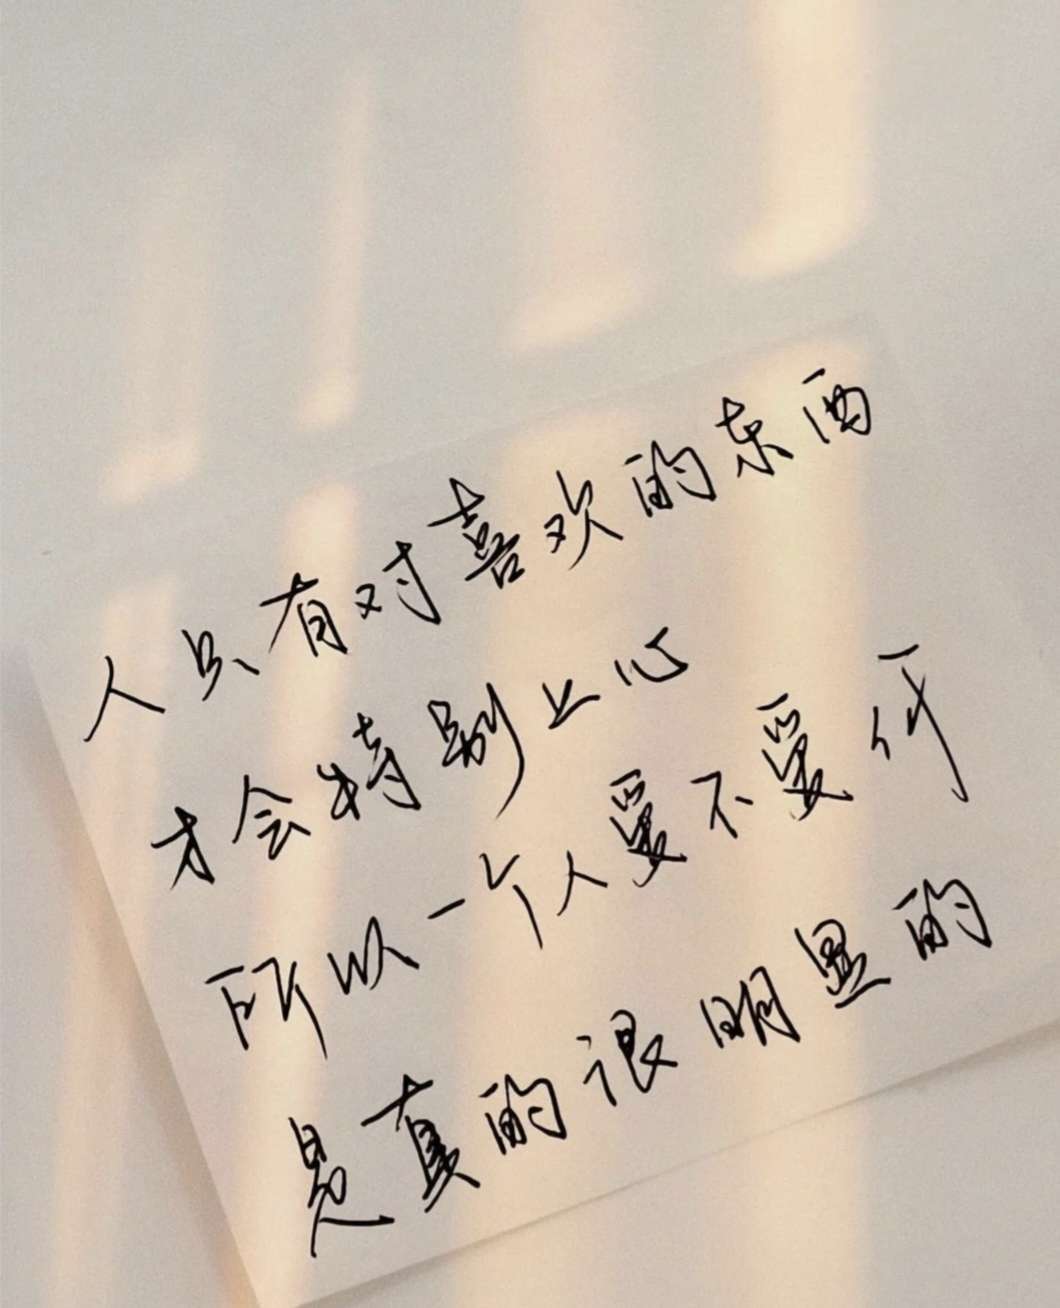 人只有对喜欢的东西
才会特别上心
所以一个人爱不爱你
是真的很明显的